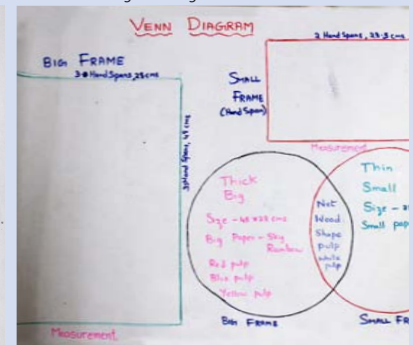 VENN DIAGRAM
BIG FRAME
Hand Spans, 28 cms
Hand Spans, 49 cms
Measurement
2 Hand Spans, 28.5 cms
SMALL
FRAME
(Hand Span)
Measurement
Thick
Big
Size - 48 x 28 cms
Big Paper - Sky
Rainbow
Red pulp
Blue pulp
Yellow pulp
BIG FRAME
Net
Wood
Shape
pulp
white
pulp
Thin
Small
Size -
Small pap
SMALL FR